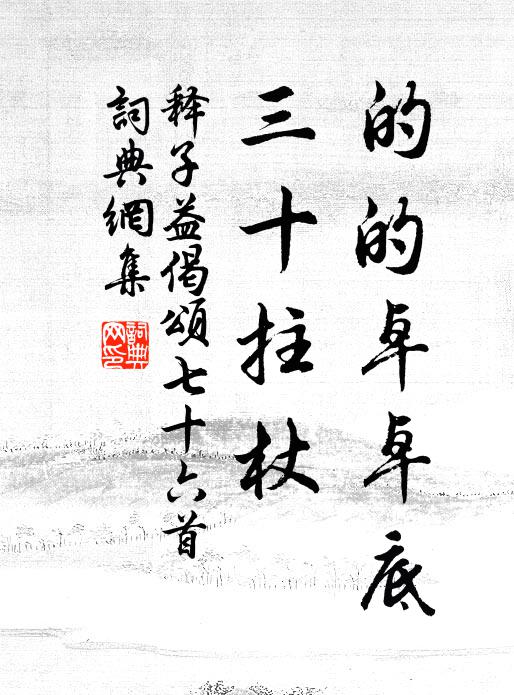 的的卓卓底
三十拄杖
释子益偈頌七十六首
詞典網集
詞典網印